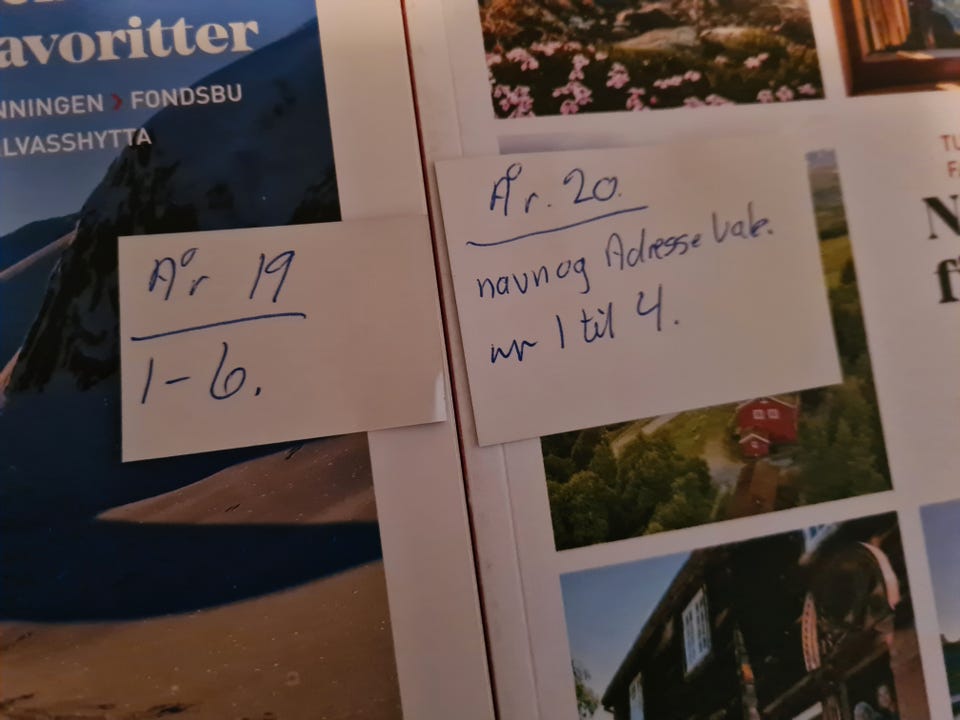 avoritter
NNINGEN > FONDSBU
LVASSHYTTA
År 19
1-6.
År. 20.
navn og Adresse Vale.
nr 1 til 4.
TU
FA
N
f